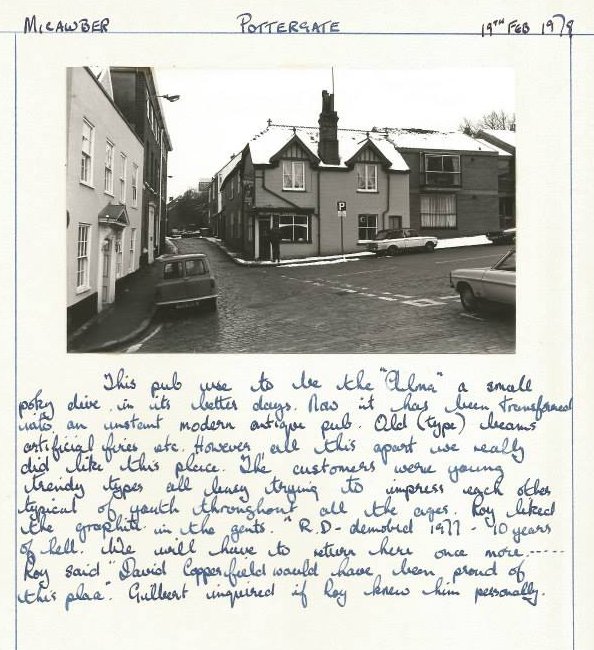 MICAWBER POTTERGATE 19TH FEB 1978
P
This pub use to be the "Alma" a small
poky dive in its better days. Now it has been transformed
into an instant modern antique pub. Old (type) beams
artificial fires etc. However all this apart we really
did like this place. The customers were young
trendy types all busy trying to impress each other
typical of youth throughout all the ages. Roy liked
the graphite in the gents. "R.D - demobed 1977 - 10 years
of hell. We will have to return here once more.-----
Roy said "David Copperfield would have been proud of
this place". Guilbert inquired if Roy knew him personally.